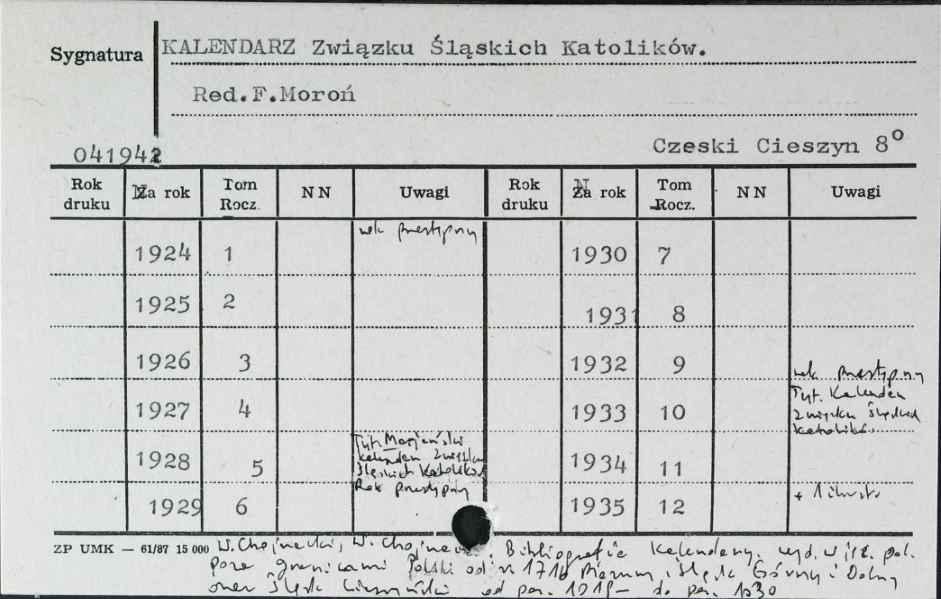 Sygnatura
KALENDARZ Związku Śląskich Katolików.
Red.F.Moroń
Czeski Cieszyn 8º
041942
Rok druku Za rok Tom Rocz. N N Uwagi Rok druku Za rok Tom Rocz. N N Uwagi
1924 1 rok przestępny 1930 7
1925 2 1931 8
1926 3 1932 9 rok przestępny
1927 4 1933 10 Tyt. Kalendarz Związku Śląskich Katolików
1928 5 Tyt. Marjański Kalendarz Związku Śląskich Katolików Rok przestępny 1934 11
1929 6 1935 12 +
ZP UMK — 61/87 15 000 W. Chojnacki, W. Chojnacki. Bibliografia Kalendarzy wyd. w jęz. pol.
poza granicami Polski od r. 1716 Śląsk Górny i Dolny
oraz Śląsk Cieszyński od